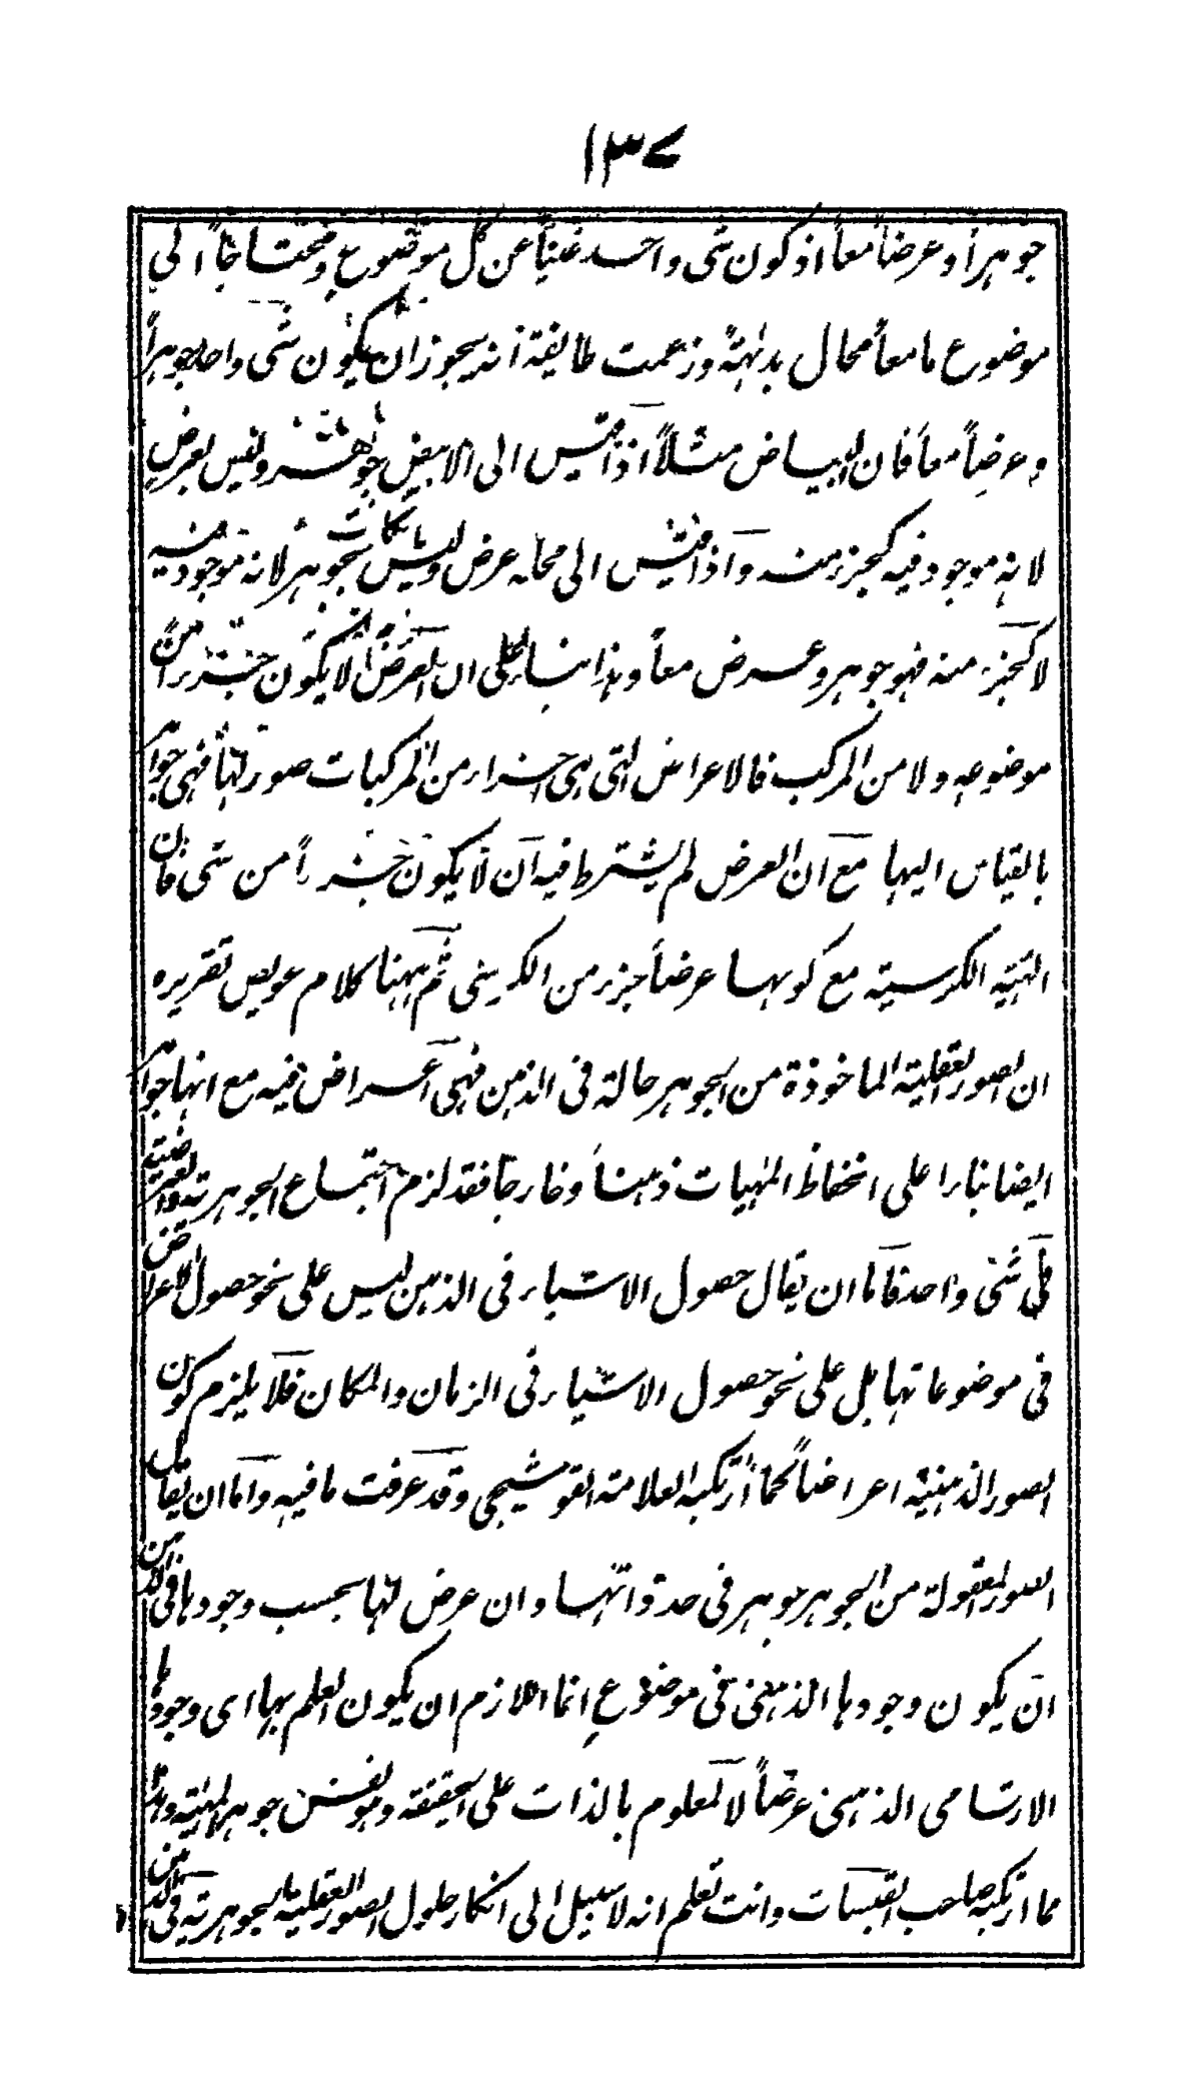 ١٣٧
جوهراً وعرضاً معاً اذ كون شئ واحد غنياً عن كل موضوع ومحتاجاً الى
موضوع ما معاً محال بداهةً وزعمت طايفة انه يجوز ان يكون شئ واحد جوهراً
وعرضاً معاً فان البياض مثلاً اذا قيس الى الابيض جوهر وليس بعرض
لانه موجود فيه كجزء منه واذا قيس الى محله عرض وليس بجوهر لانه موجود فيه
لا كجزء منه فهو جوهر وعرض معاً وهذا بناء على ان العرض لا يكون جزءاً من
موضوعه ولا من المركب فالاعراض التى هى اجزاء من المركبات صور لها فهى جواهر
بالقياس اليها مع ان العرض لم يشترط فيه ان لا يكون جزءاً من شئ فان
الهيئة الكرسية مع كونها عرضاً جزء من الكرسى ثم ههنا كلام عويص تقريره
ان الصور العقلية الماخوذة من الجوهر حالة فى الذهن فهى اعراض فيه مع انها جواهر
ايضا بناء على انحفاظ المهيات ذهناً وخارجاً فقد لزم اجتماع الجوهرية والعرضية
فى شئ واحد فاما ان يقال حصول الاشياء فى الذهن ليس على نحو حصول الاعراض
فى موضوعاتها بل على نحو حصول الاشياء فى الزمان والمكان فلا يلزم كون
الصور الذهنية اعراضاً كما ارتكبه العلامة القوشجى وقد عرفت ما فيه واما ان يقال
الصور المعقولة من الجوهر جوهر فى حد ذاتها وان عرض لها بحسب وجودها فى الذهن
ان يكون وجودها الذهنى فى موضوع انما اللازم ان يكون العلم بها اى وجودها
الارتسامى الذهنى عرضاً لا المعلوم بالذات على الحقيقة وهو نفس جوهر المهية وهذا
مما ارتكبه صاحب القبسات وانت تعلم انه لا سبيل الى انكار حلول الصور العقلية الجوهرية فى الذهن